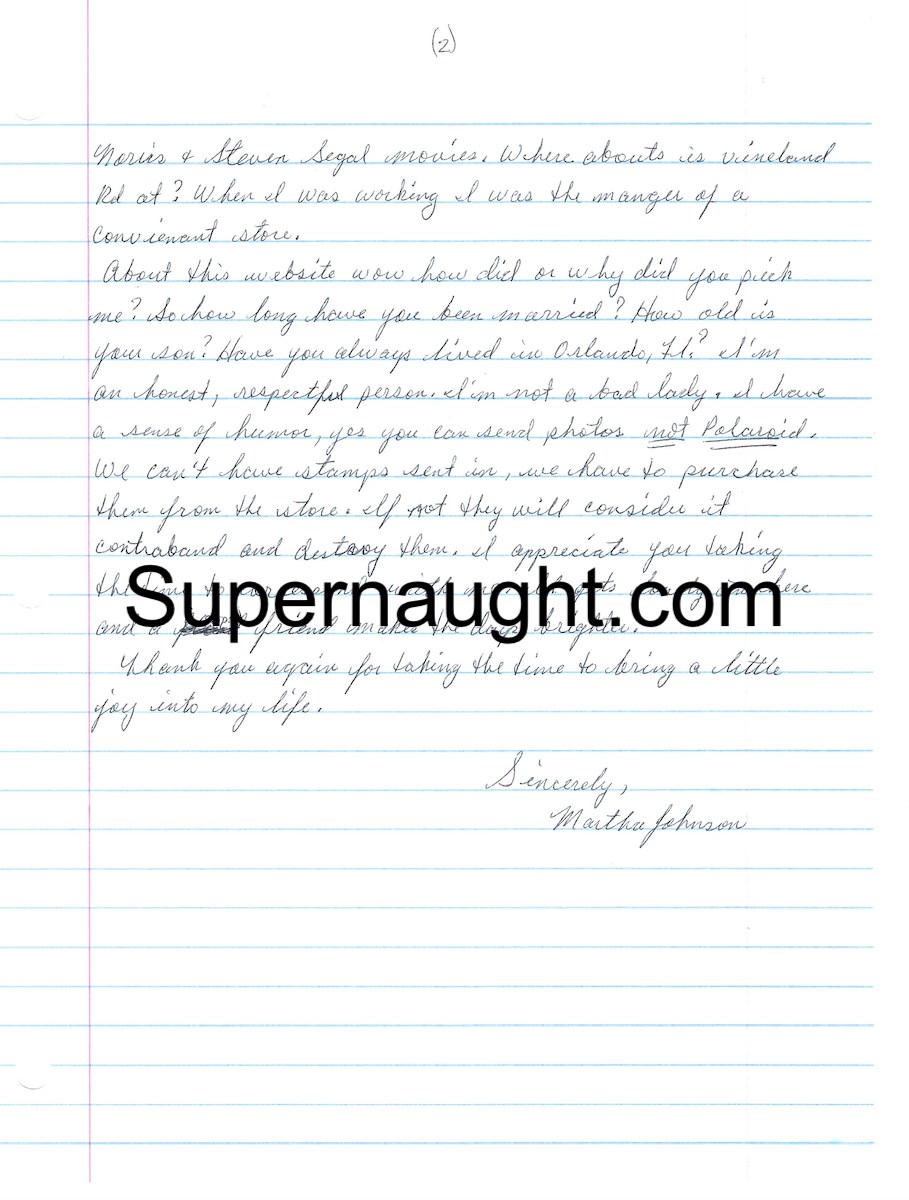 (2)
Norris & Steven Segal movies. Where abouts is vineland
Rd at? When I was working I was the manger of a
convienant store.
About this website wow how did or why did you pick
me? So how long have you been married? How old is
your son? Have you always lived in Orlando, Fl.? I'm
an honest, respectful person. I'm not a bad lady. I have
a sense of humor, yes you can send photos not Polaroid.
We can't have stamps sent in, we have to purchase
them from the store. If not they will consider it
contraband and destroy them. I appreciate you taking
the time to with me in here
Supernaught.com
and a friend makes the days brighter.
Thank you again for taking the time to bring a little
joy into my life.
Sincerely,
Martha Johnson